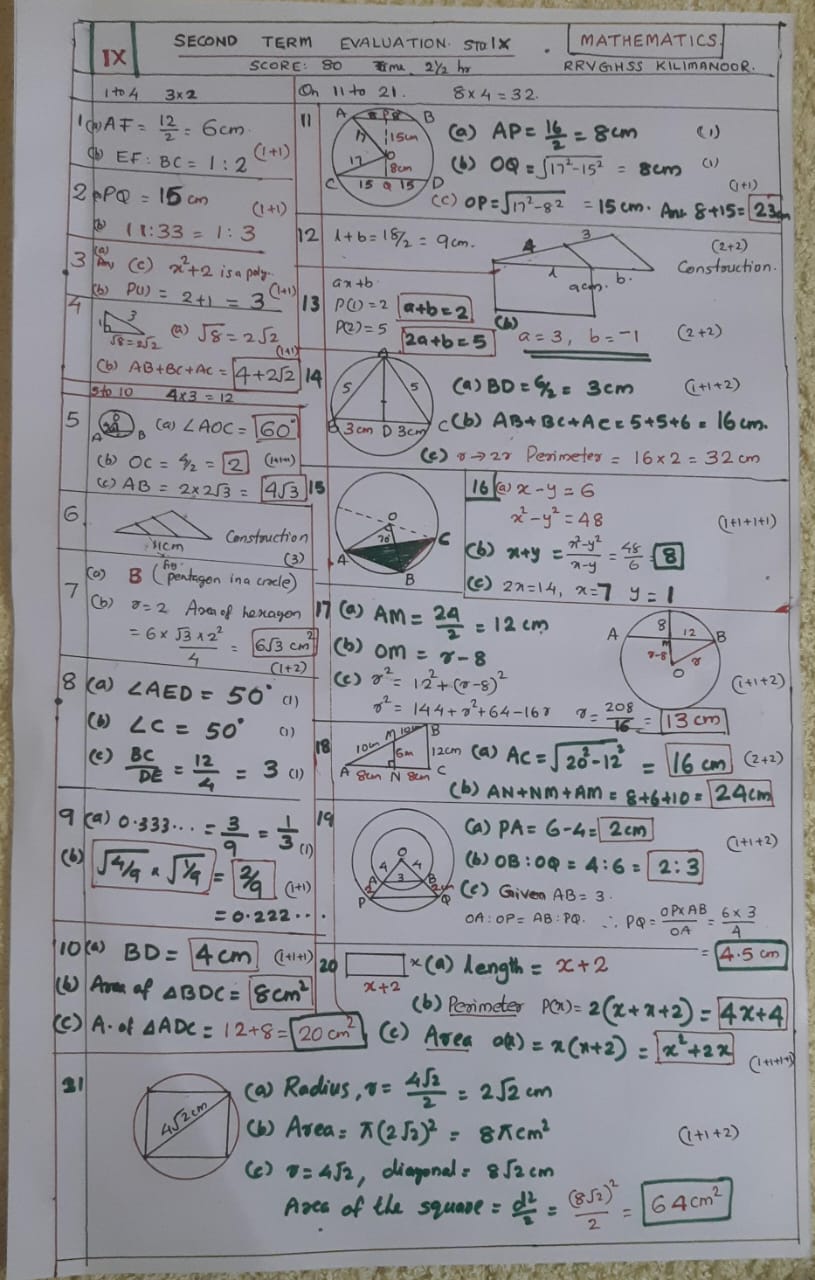 IX
SECOND TERM EVALUATION. STD. IX . MATHEMATICS
SCORE: 80 Time 2½ hr RRVGHSS KILIMANOOR.
1 to 4 3x2
1 (a) AF = 12/2 = 6cm.
(b) EF : BC = 1 : 2 (1+1)
2 (a) PQ = 15 cm
(1+1)
(b) 11:33 = 1:3
3 (a)
Ans (c) x²+2 is a poly.
(b) P(1) = 2+1 = 3 (1+1)
4
3
√8=2√2
(a) √8 = 2√2
(1+1)
(b) AB+BC+AC = 4+2√2
5 to 10 4x3 = 12
5 A B (a) ∠AOC = 60°
(b) OC = 4/2 = 2 (1+1+1)
(c) AB = 2×2√3 = 4√3
6
11cm
Construction
(3)
7 (a) B (Fig: pentagon in a circle)
(b) r=2 Area of hexagon
= 6× √3×2²/4 = 6√3 cm²
(1+2)
8 (a) ∠AED = 50° (1)
(b) ∠C = 50° (1)
(c) BC/DE = 12/4 = 3 (1)
9 (a) 0.333... = 3/9 = 1/3 (1)
(b) √4/9 × √1/9 = 2/9 (1+1)
= 0.222...
10 (a) BD = 4cm (1+1+1)
(b) Area of △BDC = 8cm²
(c) A. of △ADC = 12+8 = 20cm²
On 11 to 21. 8x4 = 32.
11 A 8 P 8 B
17 15cm
O
17 8cm
C 15 Q 15 D
(a) AP = 16/2 = 8cm (1)
(b) OQ = √17²-15² = 8cm (1)
(1+1)
(c) OP = √17²-8² = 15cm. Ans 8+15 = 23cm
12 l+b = 18/2 = 9cm.
4 3
l b.
9cm.
(2+2)
Construction.
13 ax+b.
P(1) = 2 a+b=2
P(2) = 5 2a+b=5
(b) a=3, b=-1 (2+2)
14 A
5 5
B 3cm D 3cm C
(a) BD = 6/2 = 3cm (1+1+2)
(b) AB+BC+AC = 5+5+6 = 16cm.
(c) r→2r Perimeter = 16×2 = 32cm
15 O
70°
A B C
16 (a) x-y = 6
x²-y² = 48 (1+1+1+1)
(b) x+y = x²-y²/x-y = 48/6 = 8
(c) 2x=14, x=7 y=1
17 (a) AM = 24/2 = 12 cm
(b) OM = r-8
(c) r² = 12²+(r-8)²
r² = 144+r²+64-16r r = 208/16 = 13cm
A 8 12 B
M
r-8 r
O
(1+1+2)
18 10cm M 10cm B
6m 12cm
A 8cm N 8cm C
(a) AC = √20²-12² = 16 cm (2+2)
(b) AN+NM+AM = 8+6+10 = 24cm
19 O
4 4
A 3 B
2 2cm
P Q
(a) PA = 6-4 = 2cm (1+1+2)
(b) OB:OQ = 4:6 = 2:3
(c) Given AB = 3.
OA:OP = AB:PQ. ∴ PQ = OP×AB/OA = 6×3/4
= 4.5 cm
20 x
x+2
(a) length = x+2
(b) Perimeter P(x) = 2(x+x+2) = 4x+4
(c) Area a(x) = x(x+2) = x²+2x
(1+1+1+1)
21 4√2cm
(a) Radius, r = 4√2/2 = 2√2 cm
(b) Area = π(2√2)² = 8πcm² (1+1+2)
(c) r = 4√2, diagonal = 8√2cm
Area of the square = d²/2 = (8√2)²/2 = 64cm²